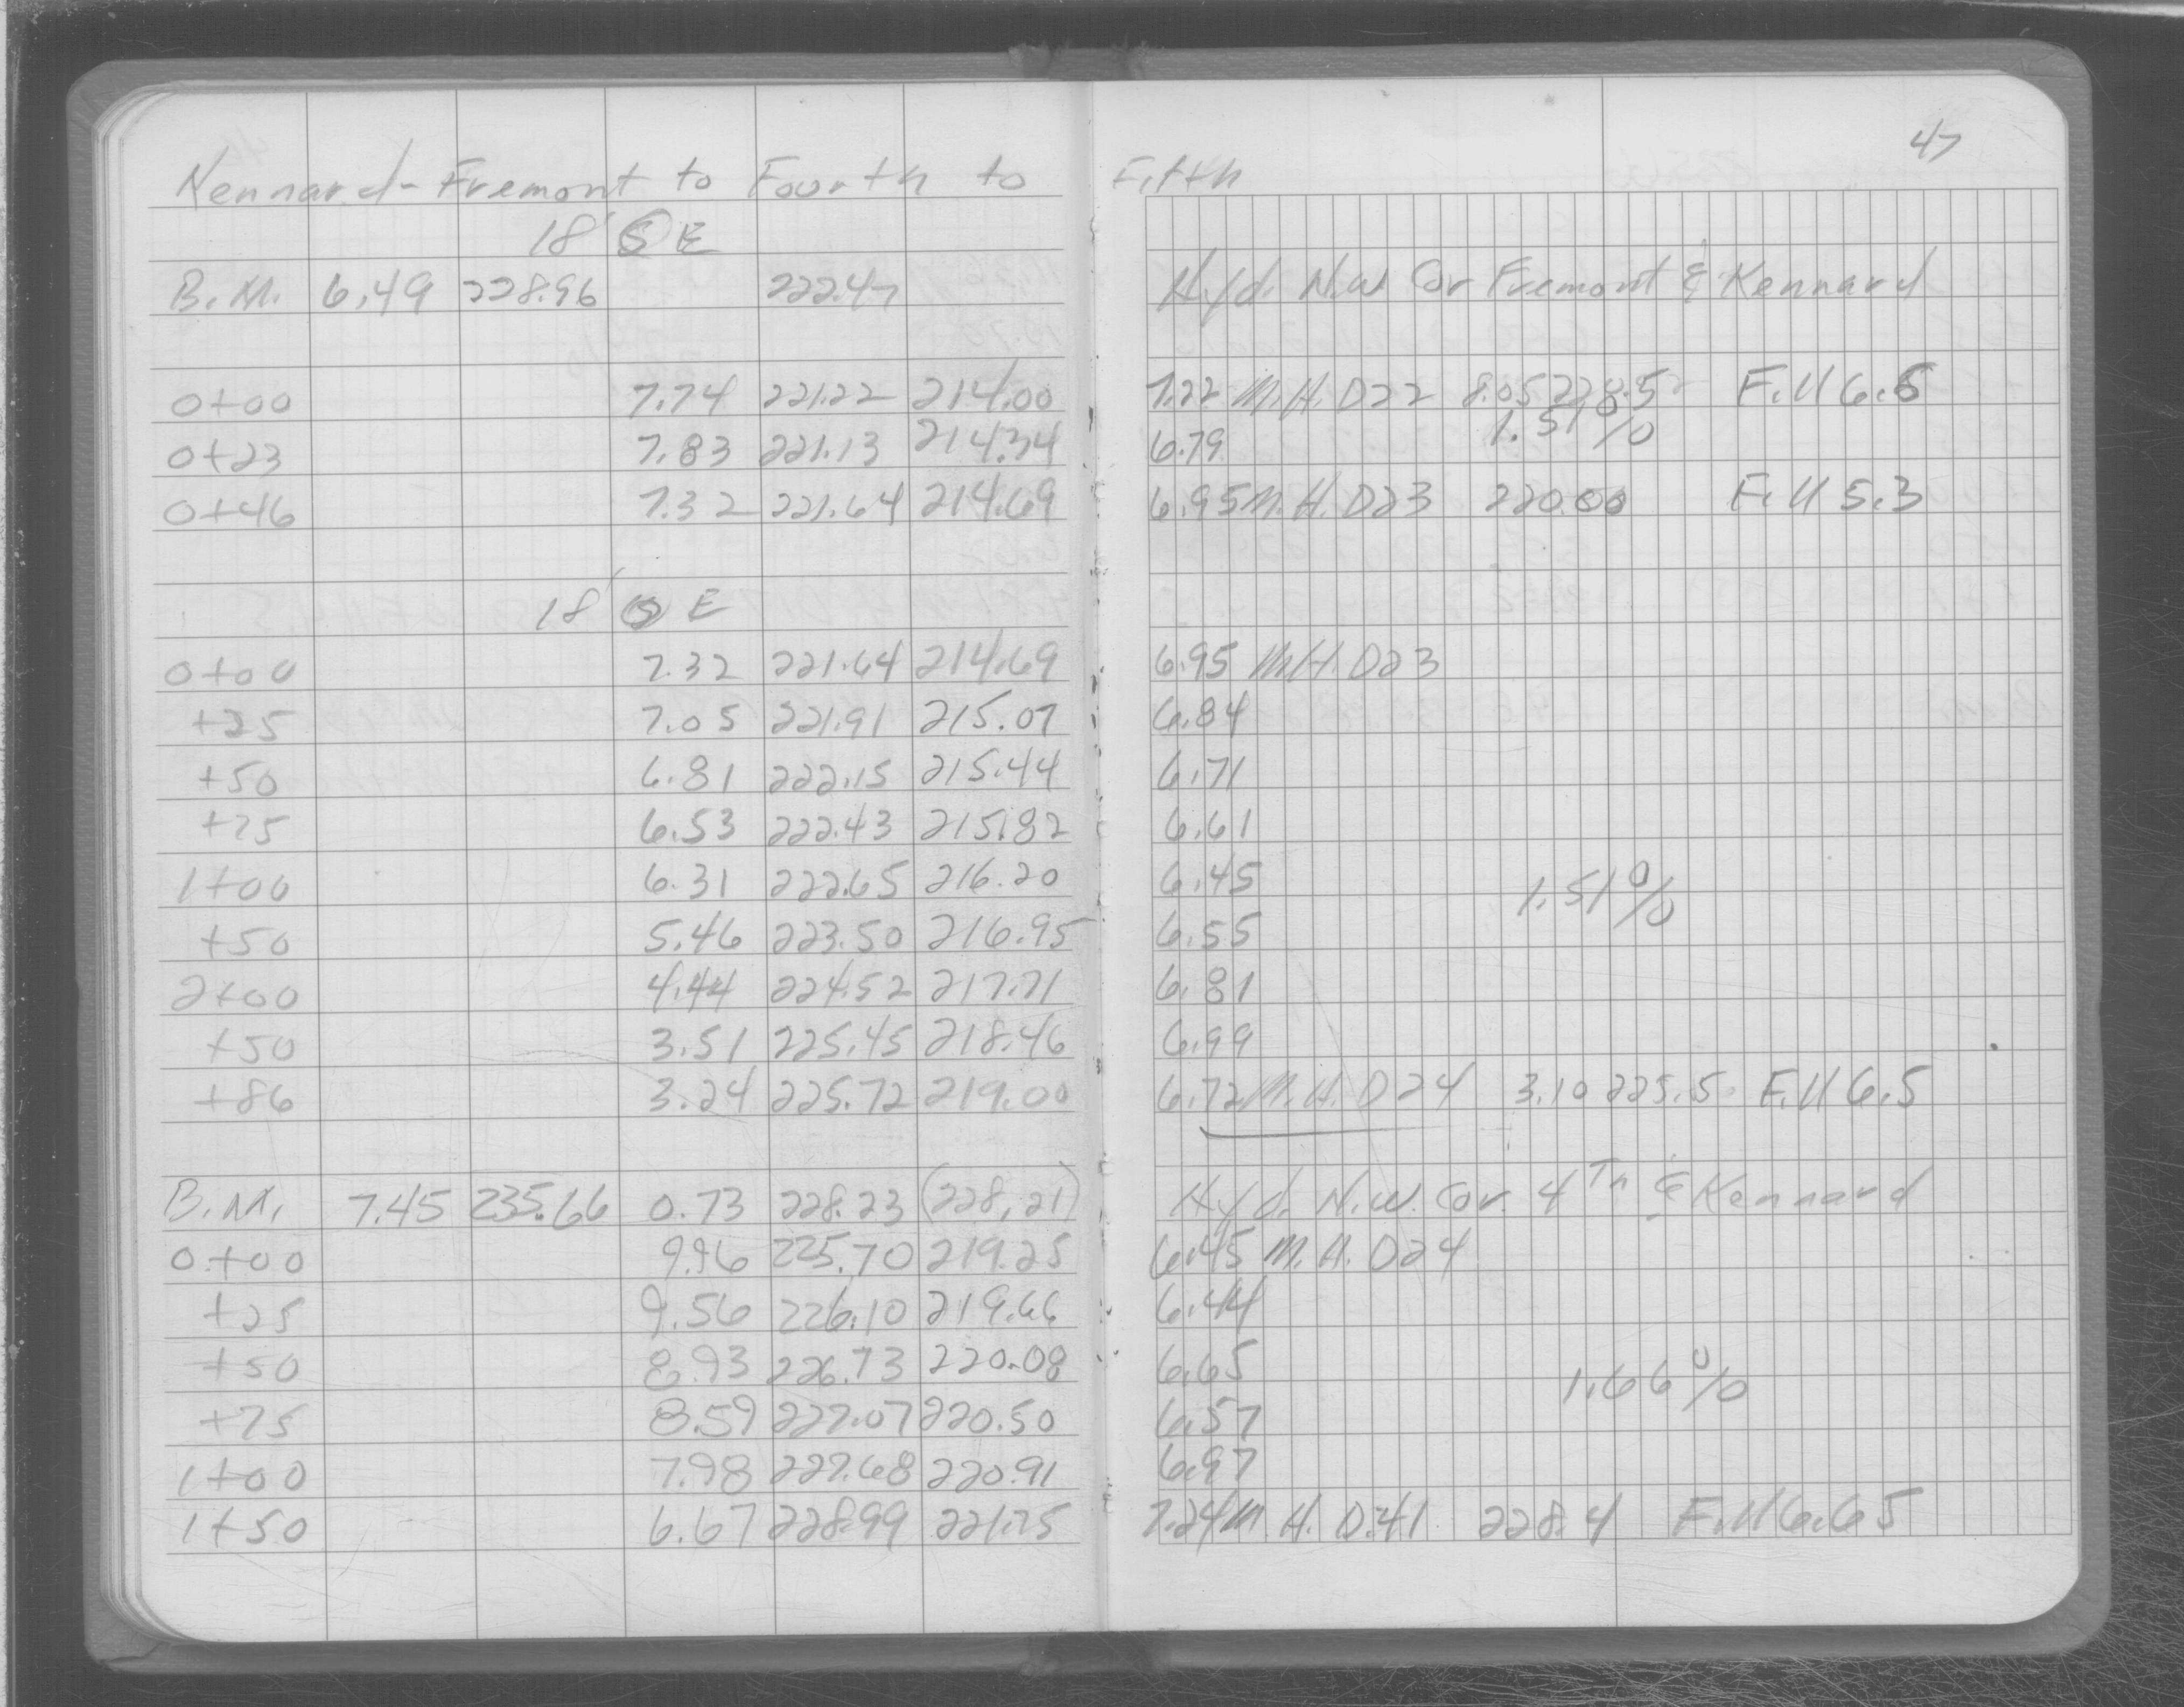 47
Kennard - Fremont to Fourth to Fifth
18' S E
B.M. 6.49 228.96 222.47 Hyd. N.W. Cor Fremont & Kennard
0+00 7.74 221.22 214.00 7.22 M.H. D22 8.05 Fill 6.5
0+23 7.83 221.13 214.34 6.79 1.51%
0+46 7.32 221.64 214.69 6.95 M.H. D23 220.00 Fill 5.3
18' S E
0+00 7.32 221.64 214.69 6.95 M.H. D23
+25 7.05 221.91 215.07 6.84
+50 6.81 222.15 215.44 6.71
+75 6.53 222.43 215.82 6.61
1+00 6.31 222.65 216.20 6.45 1.51%
+50 5.46 223.50 216.95 6.55
2+00 4.44 224.52 217.71 6.81
+50 3.51 225.45 218.46 6.99
+86 3.24 225.72 219.00 6.72 M.H. D24 3.10 225.5 Fill 6.5
B.M. 7.45 235.66 0.73 228.23 (228.21) Hyd. N.W. Cor. 4Th & Kennard
0+00 9.96 225.70 219.25 6.45 M.H. D24
+25 9.56 226.10 219.66 6.44
+50 8.93 226.73 220.08 6.65 1.66%
+75 8.59 227.07 220.50 6.57
1+00 7.98 227.68 220.91 6.97
1+50 6.67 228.99 221.75 7.24 M.H. D.41 228.4 Fill 6.65